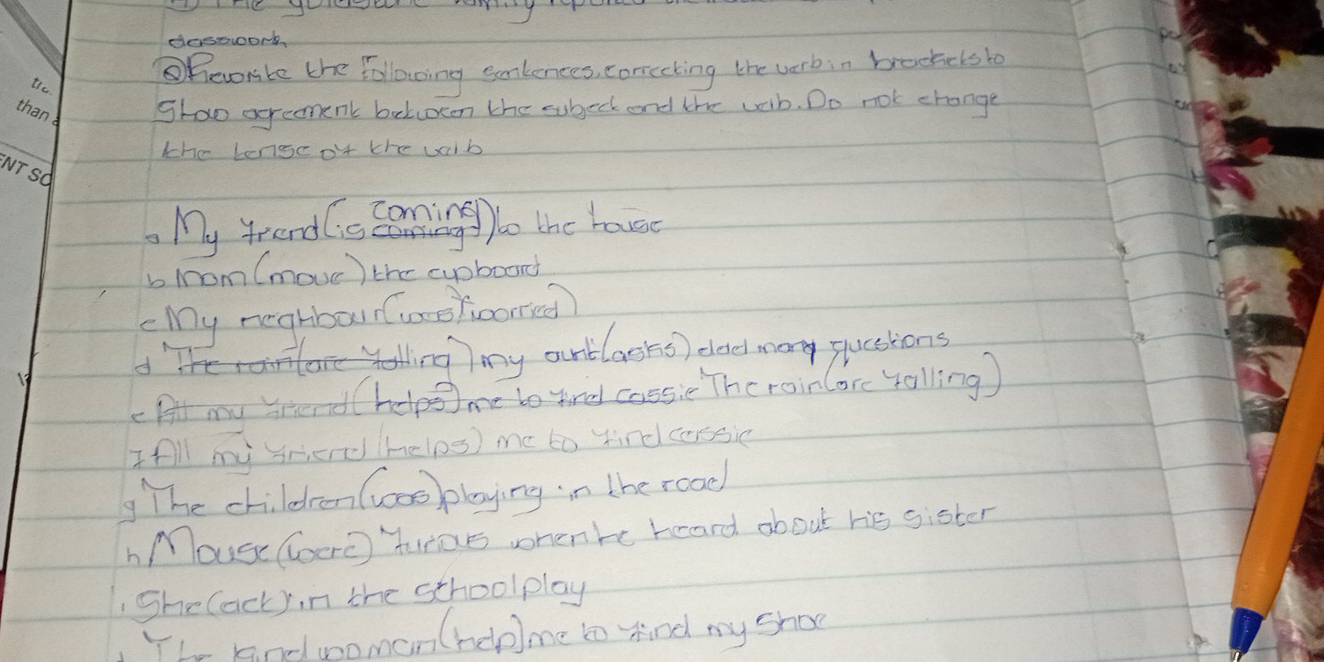 classwork
② Rewrite the following sentences, correcting the verb in brackets to
Show agreement between the subject and the verb. Do not change
the tense of the verb
a My friend (is coming) to the house
b Mom (move) the cupboard
c My neighbour (was) worried)
d The rain (are falling) my aunt (asks) dad many questions
e All my friend (helps) me to find cassie The rain (are falling)
f All my friend (helps) me to find cassie
g The children (was) playing in the road
h Mouse (were) furious when he heard about his sister
i She (act) in the school play
The kind woman (help) me to find my shoe
tic
than
ENT SC